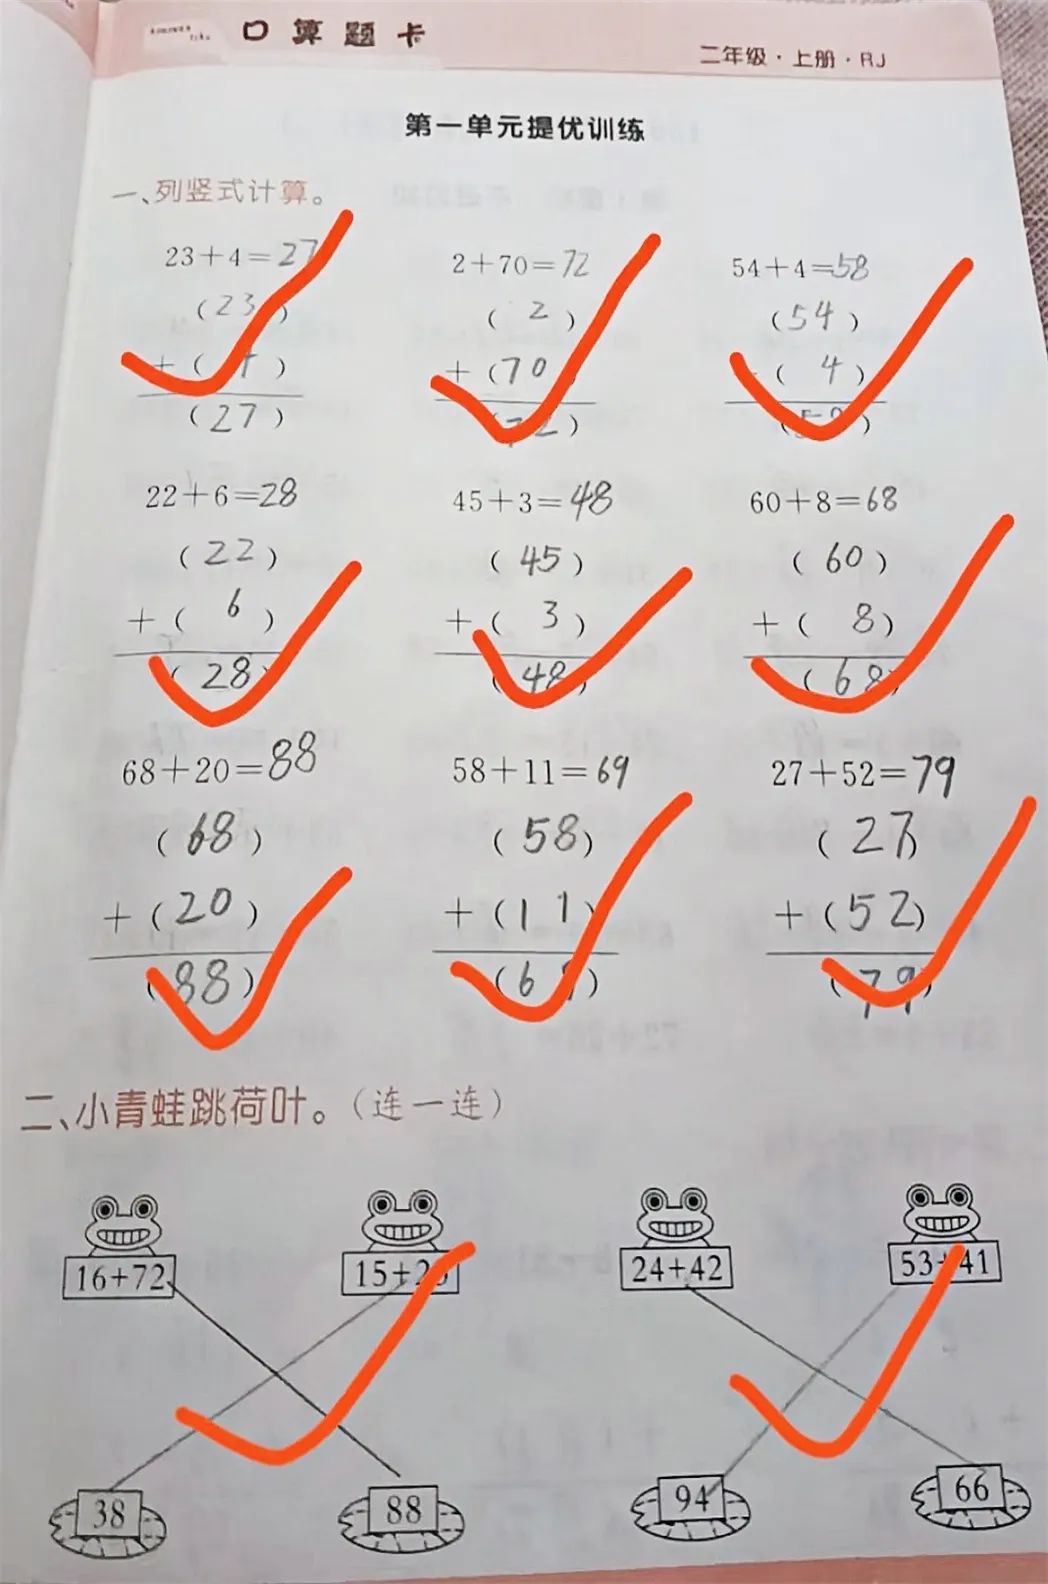 口算题卡
二年级·上册·RJ
第一单元提优训练
一、列竖式计算。
23+4=27 2+70=72 54+4=58
(23) (2) (54)
+( ) +(70) (4)
(27) (72) (58)
22+6=28 45+3=48 60+8=68
(22) (45) (60)
+(6) +(3) +(8)
(28) (48) (68)
68+20=88 58+11=69 27+52=79
(68) (58) (27)
+(20) +(11) +(52)
(88) (69) (79)
二、小青蛙跳荷叶。(连一连)
16+72 15+23 24+42 53+41
38 88 94 66